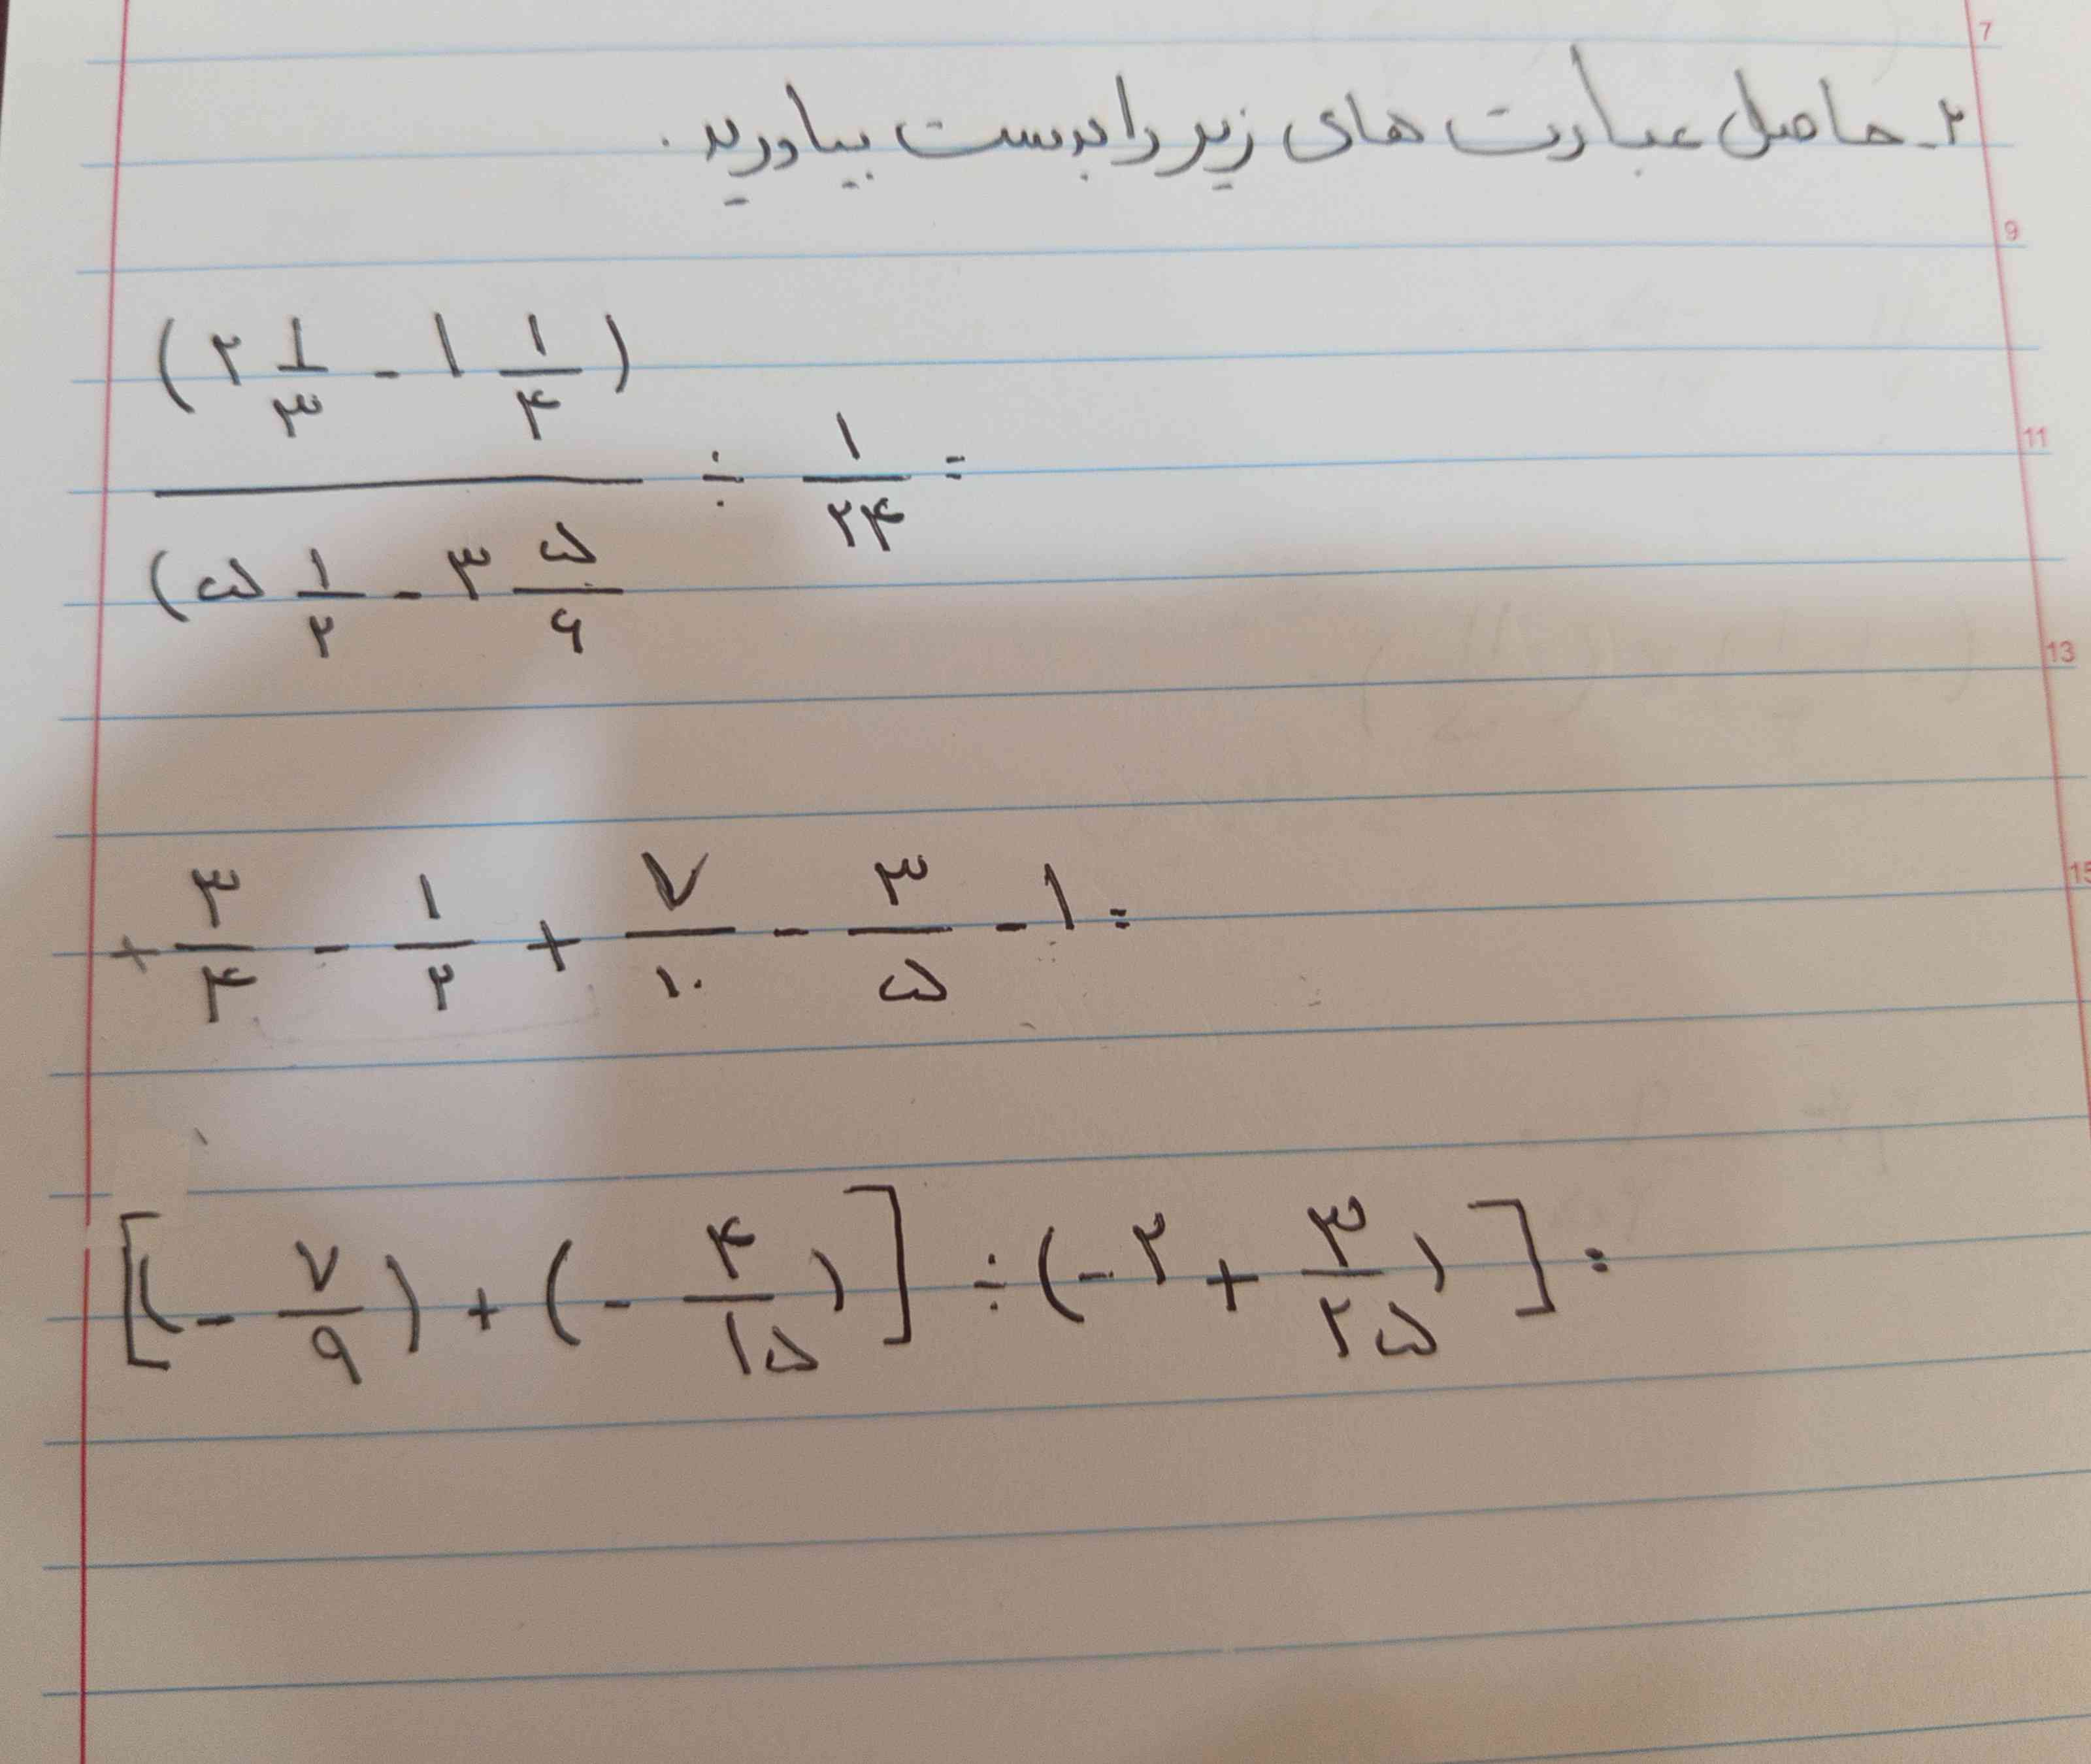 7
۲ـ حاصل عبارت های زیر را بدست بیاورید.
9
(۲ ۱/۳ - ۱ ۱/۴)
11
÷ ۱/۲۴ =
(۵ ۱/۲ - ۳ ۵/۶
13
+ ۳/۴ - ۱/۲ + ۷/۱۰ - ۳/۵ - ۱ =
15
[(- ۷/۹) + (- ۴/۱۵)] ÷ (-۲ + ۳/۲۵)] =